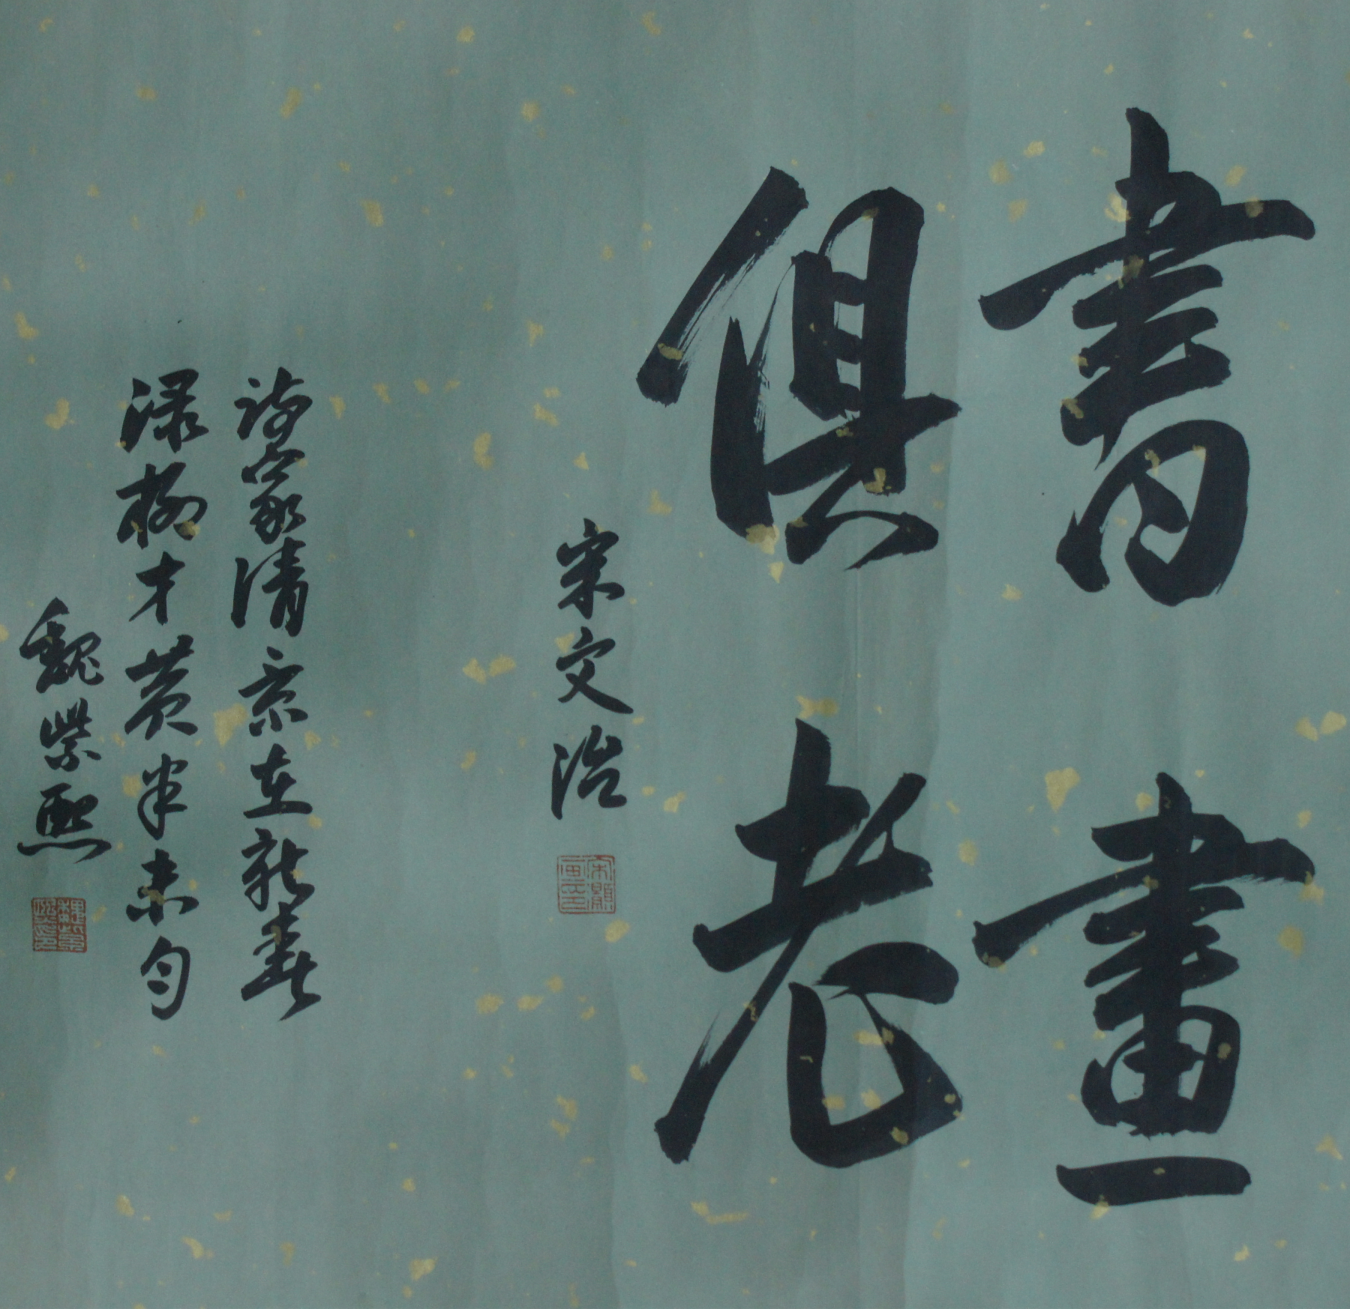 書畫
俱老
宋文治
詩家清景在新春
渌柳才黄半未匀
魏紫熙